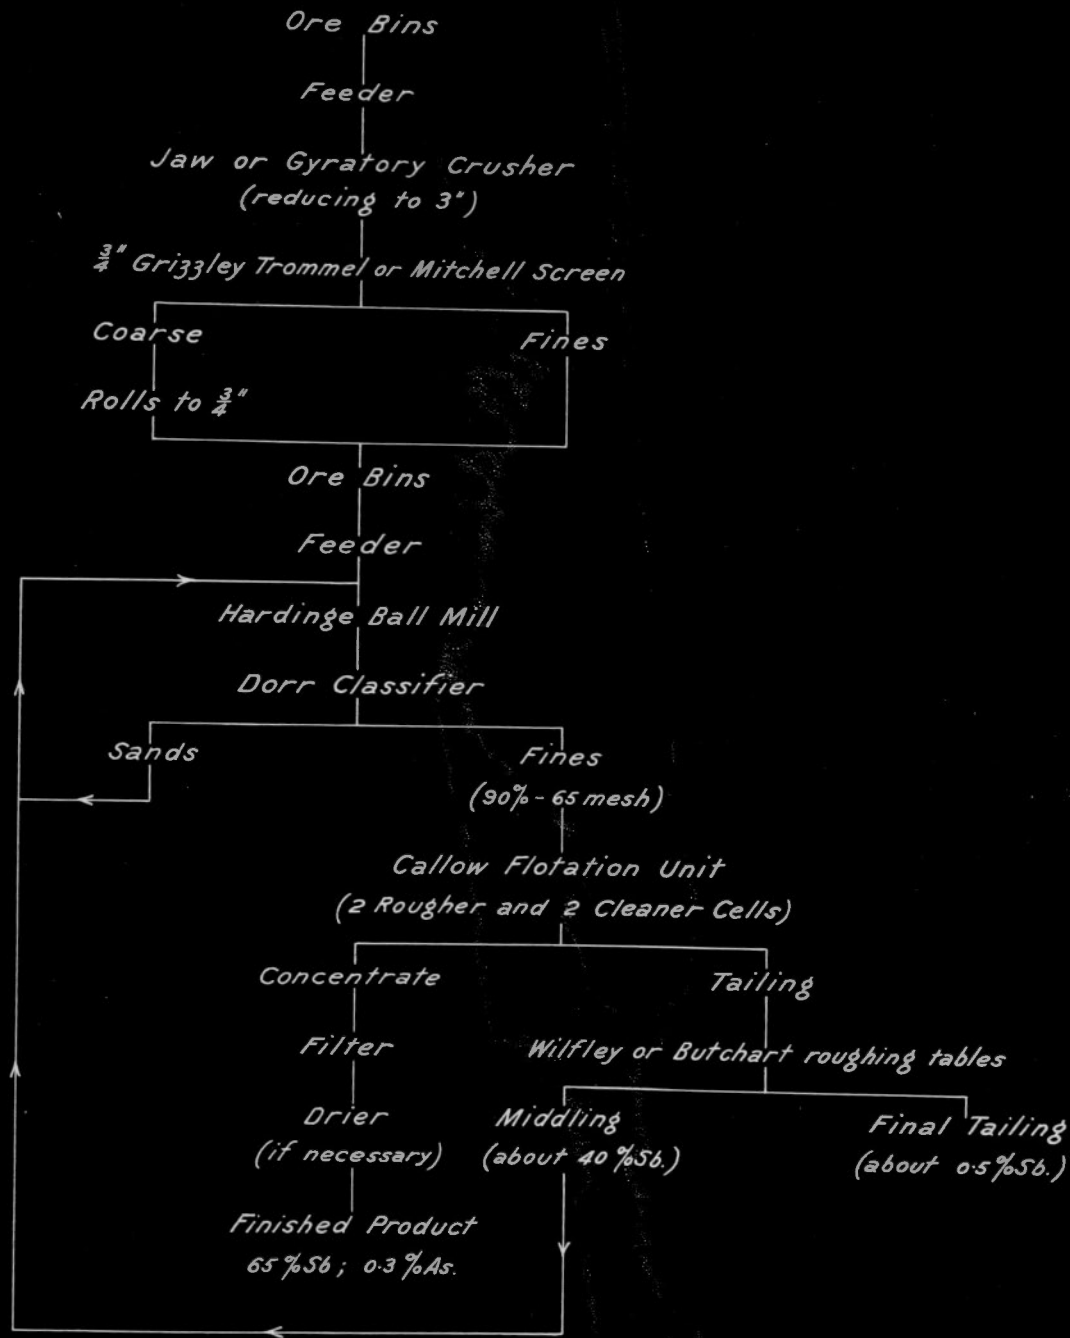 Ore Bins
Feeder
Jaw or Gyratory Crusher
(reducing to 3")
3/4" Grizzley Trommel or Mitchell Screen
Coarse
Fines
Rolls to 3/4"
Ore Bins
Feeder
Hardinge Ball Mill
Dorr Classifier
Sands
Fines
(90% - 65 mesh)
Callow Flotation Unit
(2 Rougher and 2 Cleaner Cells)
Concentrate
Tailing
Filter
Wilfley or Butchart roughing tables
Drier
(if necessary)
Middling
(about 40 %Sb.)
Final Tailing
(about 0·5 %Sb.)
Finished Product
65 %Sb; 0·3 %As.